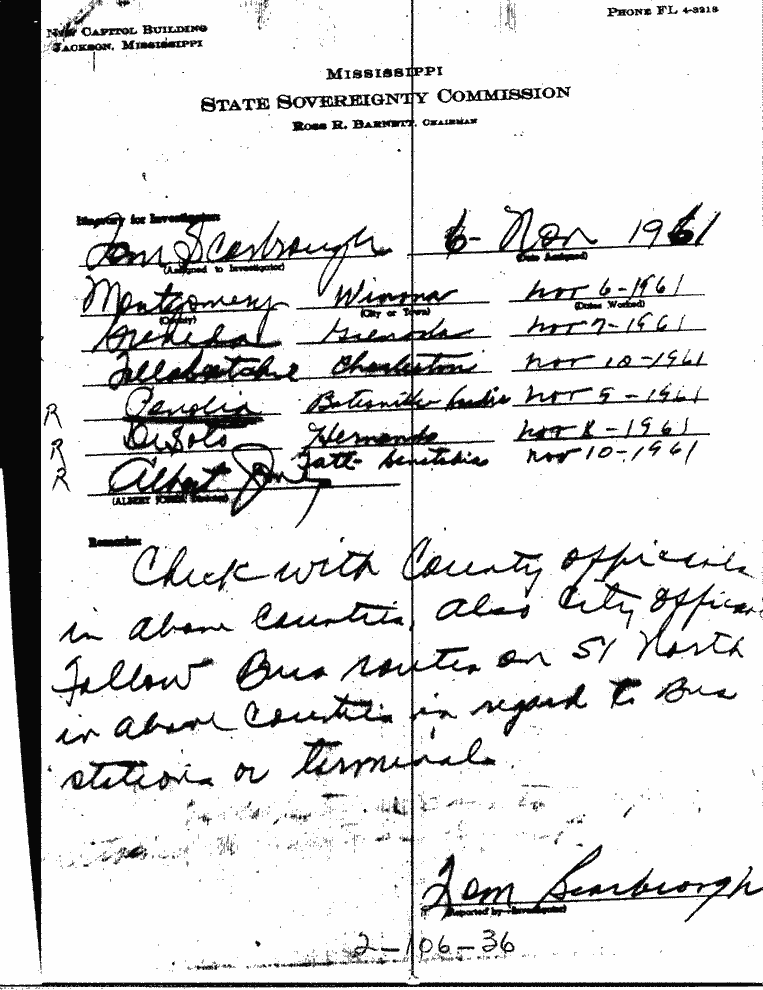 New Capitol Building
Jackson, Mississippi
Phone FL 4-3218
Mississippi
State Sovereignty Commission
Ross R. Barnett, Chairman
Itinerary for Investigator:
Tom Scarbrough 6- Nov 1961
(Assigned to Investigator) (Date Assigned)
Montgomery Winona Nov 6-1961
(County) (City or Town) (Dates Worked)
Grenada Grenada Nov 7-1961
Tallahatchie Charleston Nov 10-1961
R Panola Batesville Nov 9-1961
R DeSoto Hernando Nov 8-1961
R Tate Senatobia Nov 10-1961
Albert Jones
(ALBERT JONES, Director)
Remarks:
Check with County officials
in above Counties. Also City Officials
Follow Bus routes on 51 North
in above Counties in regard to Bus
stations or terminals
Tom Scarbrough
(Reported by - Investigator)
2-106-36